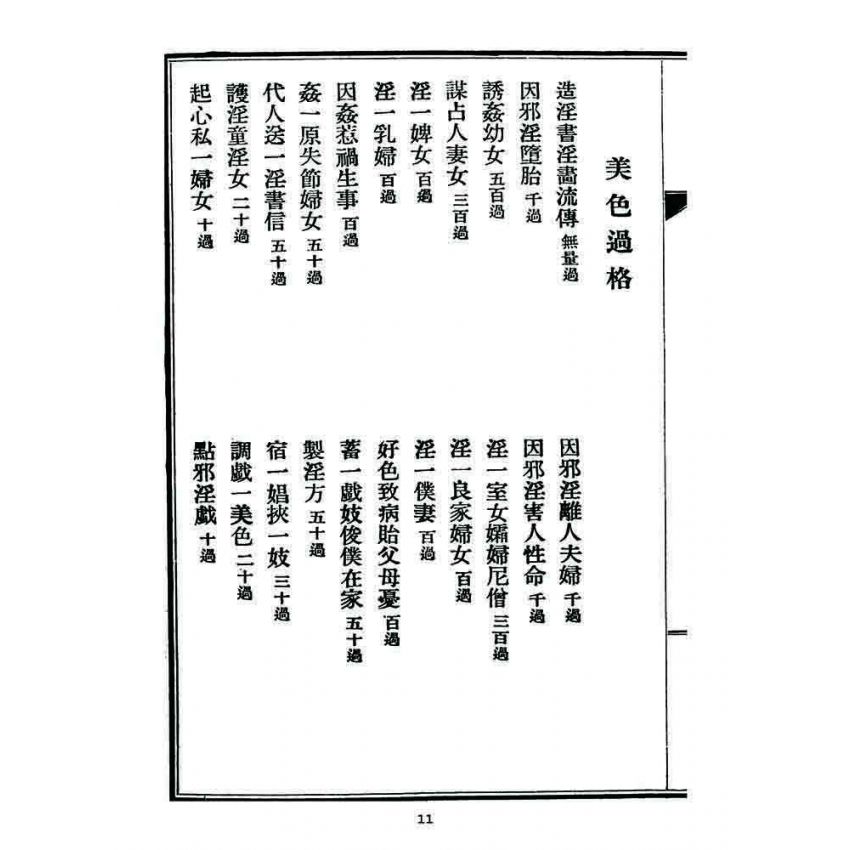 美色過格
造淫書淫畵流傳 無量過
因邪淫離人夫婦 千過
因邪淫墮胎 千過
因邪淫害人性命 千過
誘姦幼女 五百過
淫一室女孀婦尼僧 三百過
謀占人妻女 三百過
淫一良家婦女 百過
淫一婢女 百過
淫一僕妻 百過
淫一乳婦 百過
好色致病貽父母憂 百過
因姦惹禍生事 百過
蓄一戲妓俊僕在家 五十過
姦一原失節婦女 五十過
製淫方 五十過
代人送一淫書信 五十過
宿一娼挾一妓 三十過
護淫童淫女 二十過
調戲一美色 二十過
起心私一婦女 十過
點邪淫戲 十過
11